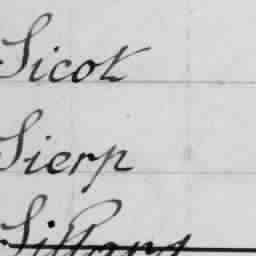 Sicot
Sierp